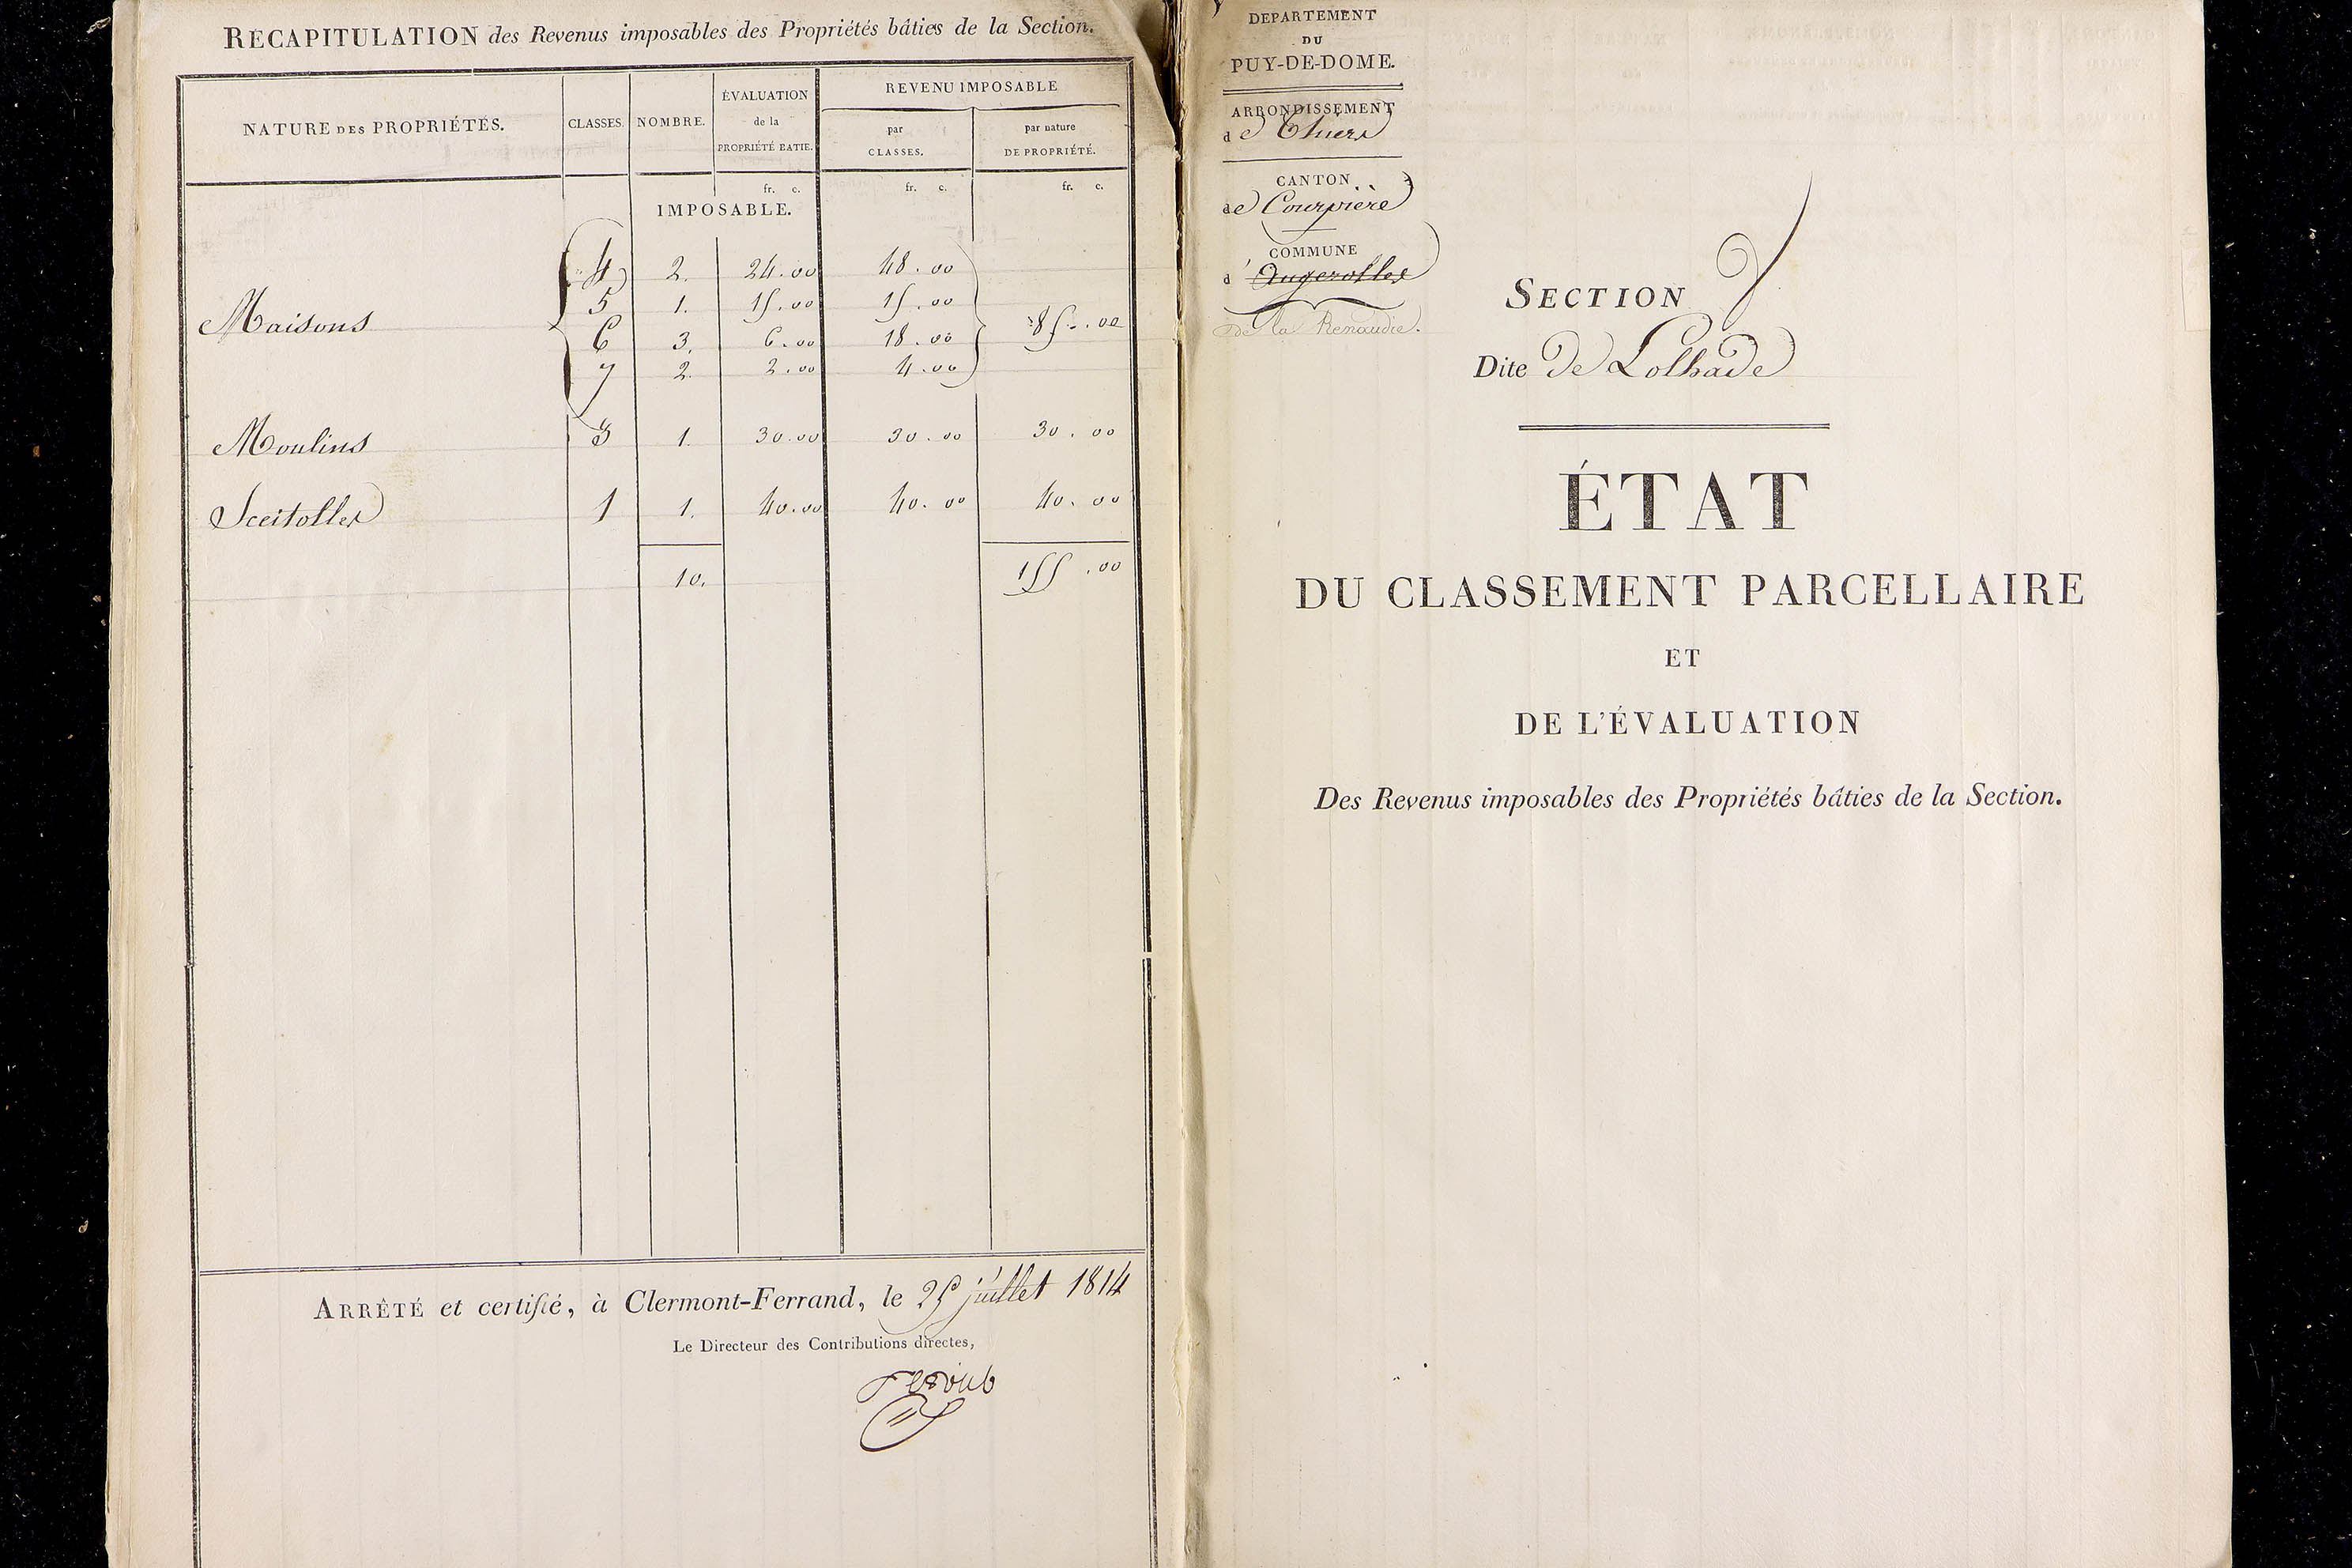 RÉCAPITULATION des Revenus imposables des Propriétés bâties de la Section.
NATURE DES PROPRIÉTÉS. CLASSES. NOMBRE. ÉVALUATION de la PROPRIÉTÉ BATIE. REVENU IMPOSABLE
par CLASSES. par nature DE PROPRIÉTÉ.
fr. c. fr. c. fr. c.
IMPOSABLE.
Maisons
4 2. 24.00 48.00
5 1. 15.00 15.00
6 3. 6.00 18.00
7 2. 2.00 4.00
85.00
Moulins 3 1. 30.00 30.00 30.00
Sceitolles 1 1. 40.00 40.00 40.00
10. 155.00
ARRÊTÉ et certifié, à Clermont-Ferrand, le 25 juillet 1814
Le Directeur des Contributions directes,
DEPARTEMENT
DU
PUY-DE-DOME.
ARRONDISSEMENT
de Thiers
CANTON
de Courpière
COMMUNE
d'Augerolles
de la Renaudie.
SECTION
Dite de Lolhade
ÉTAT
DU CLASSEMENT PARCELLAIRE
ET
DE L'ÉVALUATION
Des Revenus imposables des Propriétés bâties de la Section.